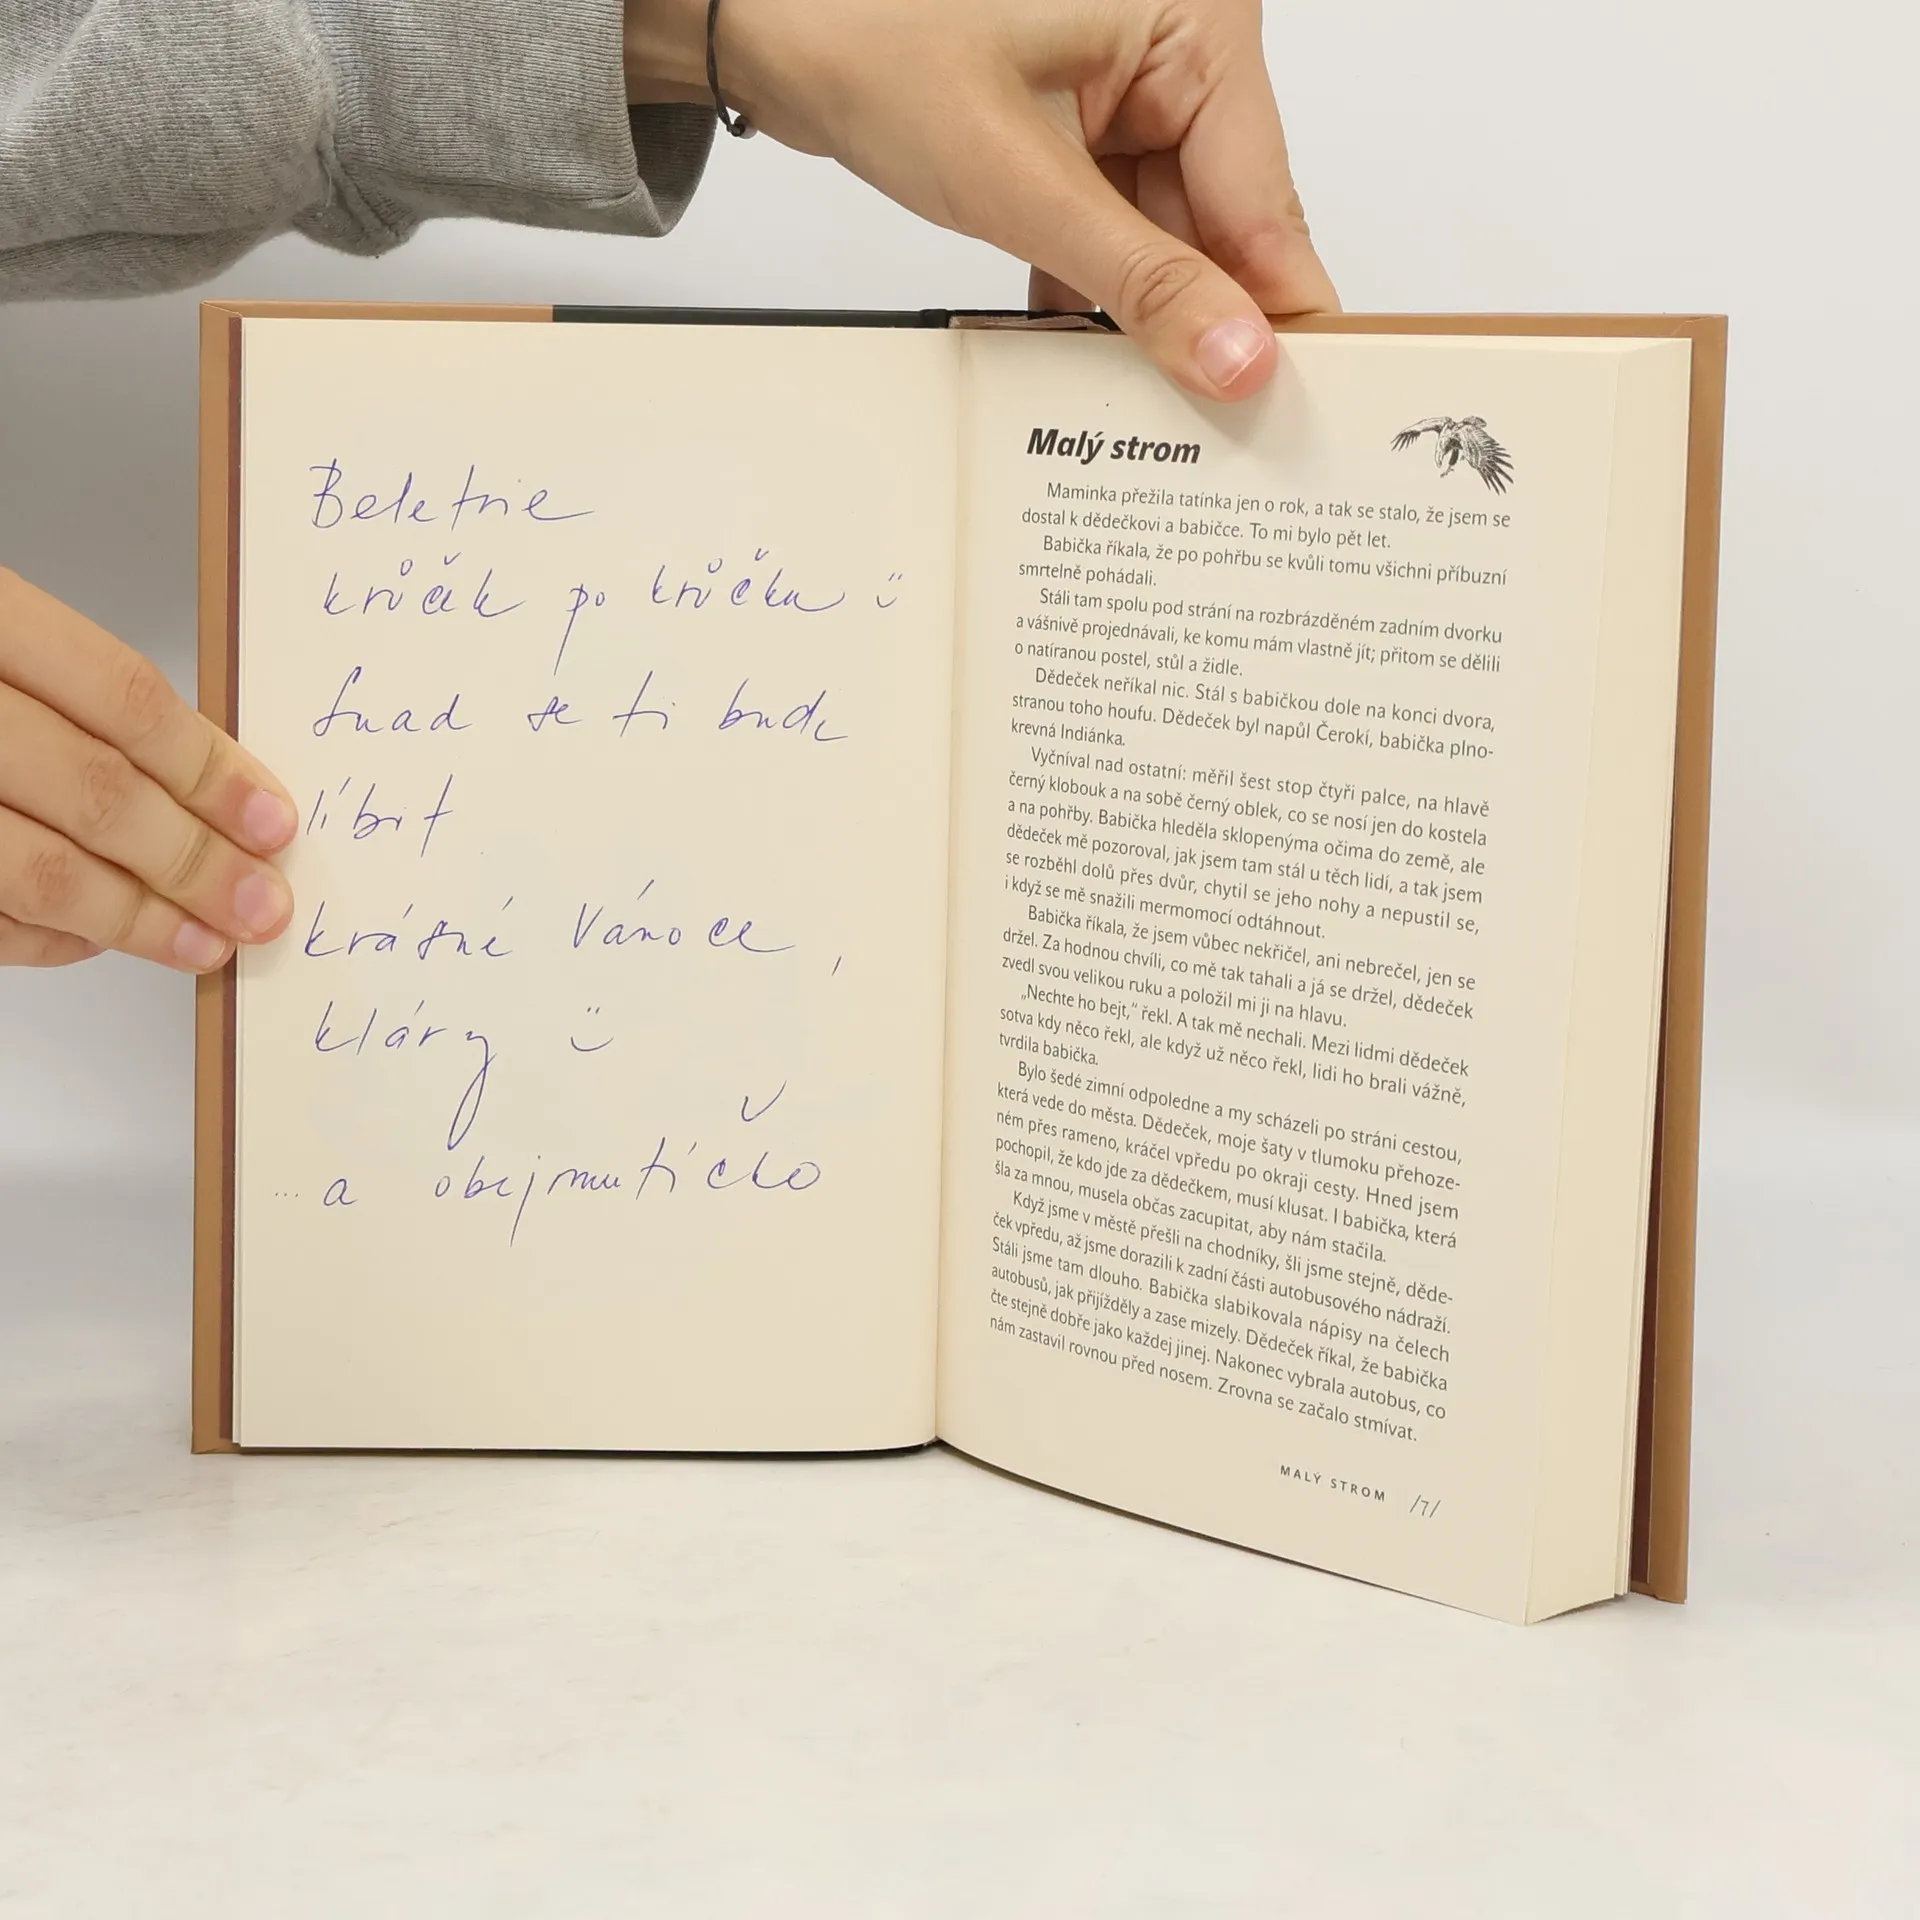 Beletrie
krůček po krůčku ⍨
Snad se ti bude
líbit
krásné Vánoce,
kláry ⍨
... a obejmutíčko
Malý strom
Maminka přežila tatínka jen o rok, a tak se stalo, že jsem se
dostal k dědečkovi a babičce. To mi bylo pět let.
Babička říkala, že po pohřbu se kvůli tomu všichni příbuzní
smrtelně pohádali.
Stáli tam spolu pod strání na rozbrázděném zadním dvorku
a vášnivě projednávali, ke komu mám vlastně jít; přitom se dělili
o natíranou postel, stůl a židle.
Dědeček neříkal nic. Stál s babičkou dole na konci dvora,
stranou toho houfu. Dědeček byl napůl Čerokí, babička plno-
krevná Indiánka.
Vyčníval nad ostatní: měřil šest stop čtyři palce, na hlavě
černý klobouk a na sobě černý oblek, co se nosí jen do kostela
a na pohřby. Babička hleděla sklopenýma očima do země, ale
dědeček mě pozoroval, jak jsem tam stál u těch lidí, a tak jsem
se rozběhl dolů přes dvůr, chytil se jeho nohy a nepustil se,
i když se mě snažili mermomocí odtáhnout.
Babička říkala, že jsem vůbec nekřičel, ani nebrečel, jen se
držel. Za hodnou chvíli, co mě tak tahali a já se držel, dědeček
zvedl svou velikou ruku a položil mi ji na hlavu.
„Nechte ho bejt,“ řekl. A tak mě nechali. Mezi lidmi dědeček
sotva kdy něco řekl, ale když už něco řekl, lidi ho brali vážně,
tvrdila babička.
Bylo šedé zimní odpoledne a my scházeli po stráni cestou,
která vede do města. Dědeček, moje šaty v tlumoku přehoze-
ném přes rameno, kráčel vpředu po okraji cesty. Hned jsem
pochopil, že kdo jde za dědečkem, musí klusat. I babička, která
šla za mnou, musela občas zacupitat, aby nám stačila.
Když jsme v městě přešli na chodníky, šli jsme stejně, děde-
ček vpředu, až jsme dorazili k zadní části autobusového nádraží.
Stáli jsme tam dlouho. Babička slabikovala nápisy na čelech
autobusů, jak přijížděly a zase mizely. Dědeček říkal, že babička
čte stejně dobře jako každej jinej. Nakonec vybrala autobus, co
nám zastavil rovnou před nosem. Zrovna se začalo stmívat.
MALÝ STROM /7/